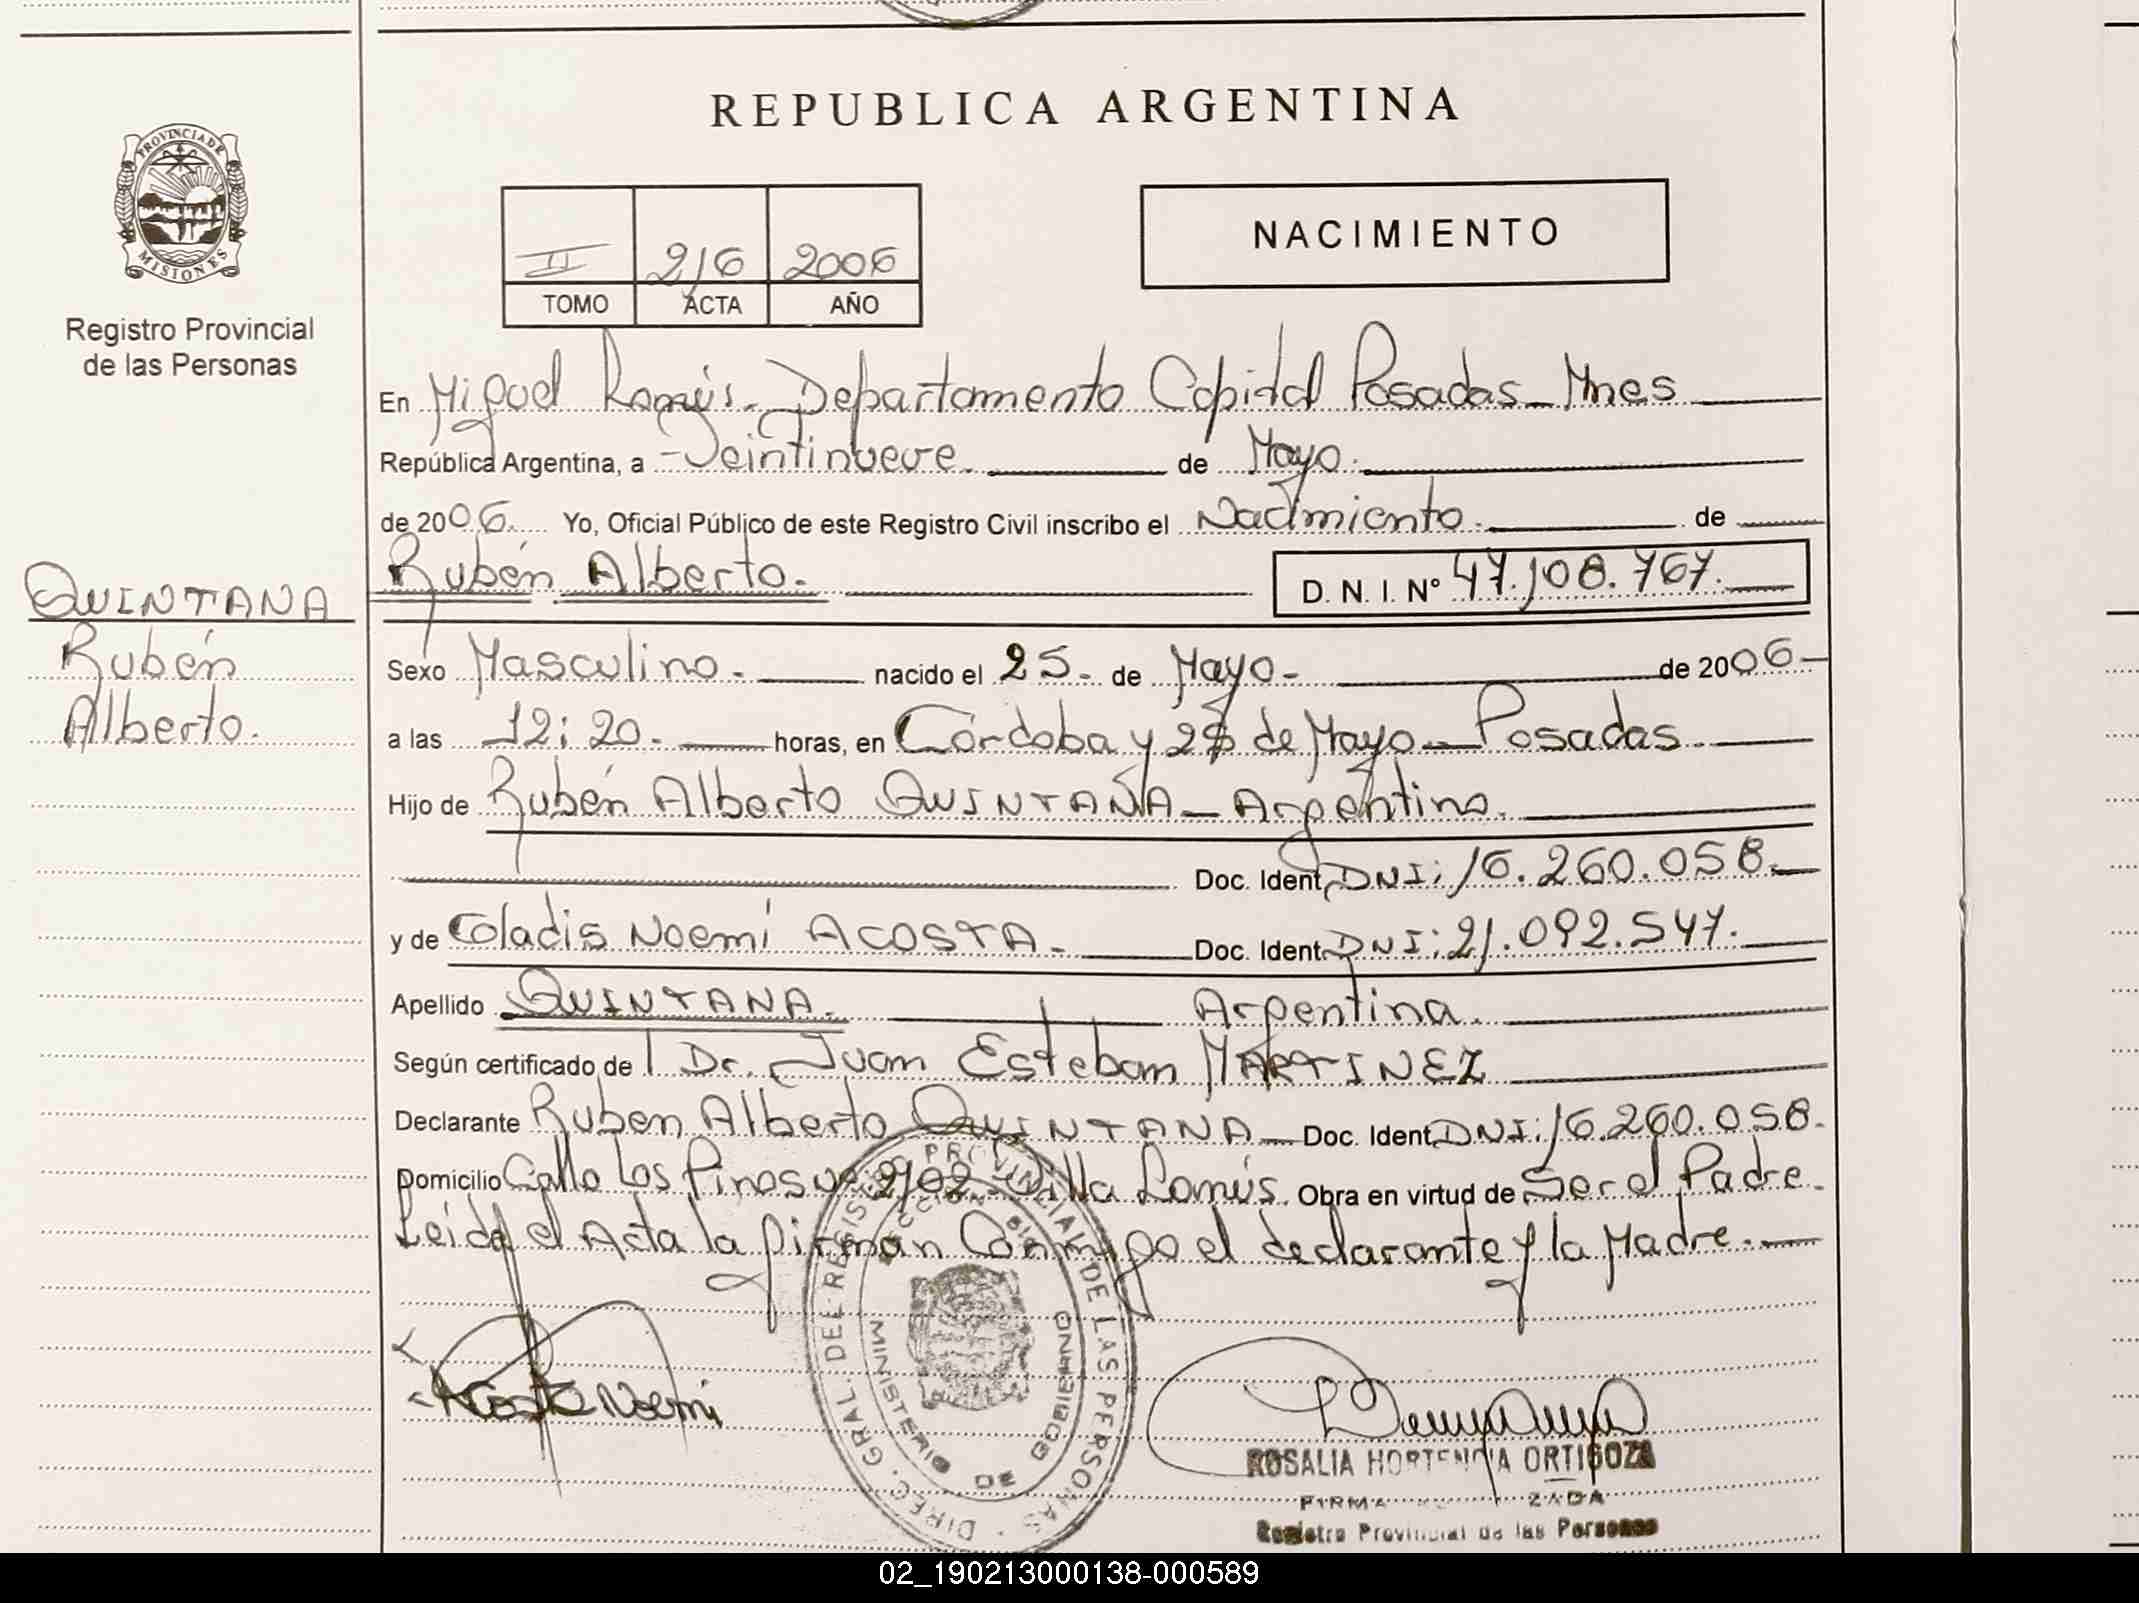 REPUBLICA ARGENTINA
PROVINCIA DE
MISIONES
Registro Provincial
de las Personas
NACIMIENTO
II 216 2006
TOMO ACTA AÑO
En Miguel Lanús. Departamento Capital Posadas - Mnes
República Argentina, a - Veintinueve. de Mayo.
de 2006. Yo, Oficial Público de este Registro Civil inscribo el Nacimiento. de
Rubén Alberto. D. N. I. Nº 47.108.767.
QUINTANA
Rubén
Alberto.
Sexo Masculino. nacido el 25. de Mayo. de 2006
a las 12:20. horas, en Córdoba y 25 de Mayo - Posadas.
Hijo de Rubén Alberto QUINTANA - Argentino.
Doc. Ident. DNI: 16.260.058.
y de Gladis Noemí ACOSTA. Doc. Ident. DNI: 21.092.547.
Apellido QUINTANA. Argentina.
Según certificado de Dr. Juan Esteban MARTINEZ
Declarante Ruben Alberto QUINTANA - Doc. Ident. DNI: 16.260.058.
Domicilio Calle Los Pinos Nº 2102 - Villa Lanús. Obra en virtud de Ser el Padre.
Leída el Acta la firman Conmigo el declarante y la Madre.
DIREC. GRAL. DEL REGISTRO PROVINCIAL DE LAS PERSONAS
MINISTERIO DE GOBIERNO
Acosta Noemi
ROSALIA HORTENCIA ORTIGOZA
FIRMA
Registro Provincial de las Personas
02_190213000138-000589